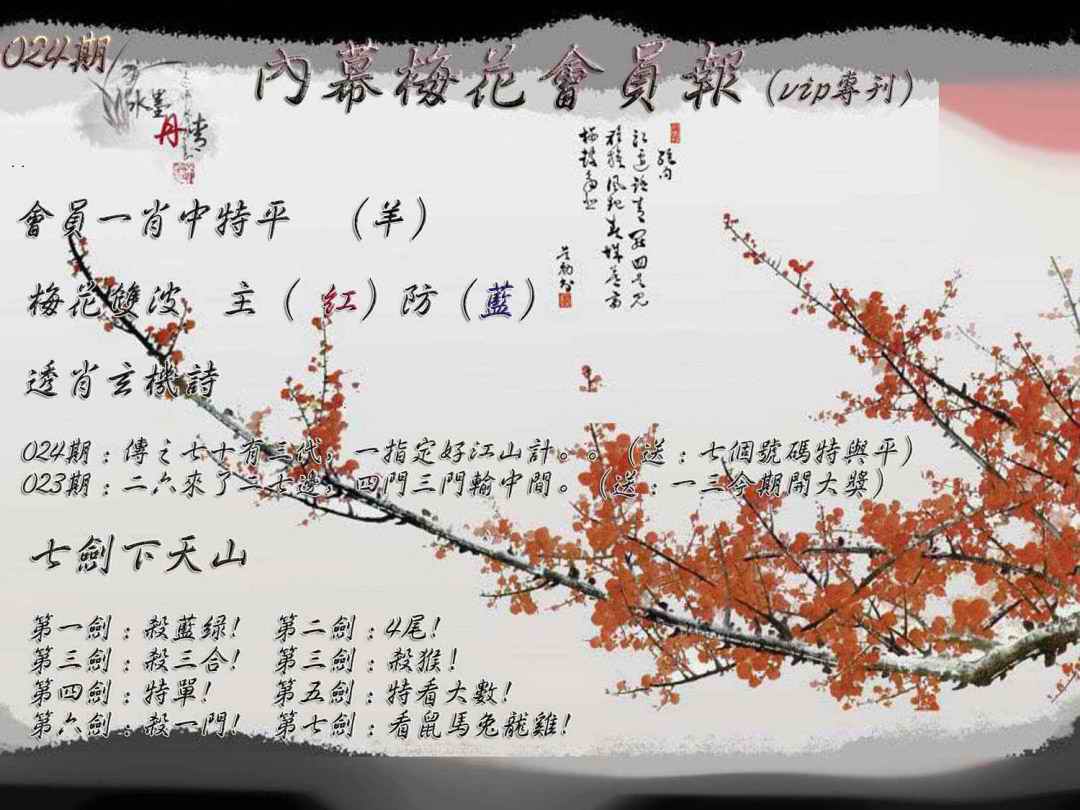 024期
內幕梅花會員報（vip專刊）
水墨
丹青
會員一肖中特平 （羊）
梅花雙波 主（紅）防（藍）
透肖玄機詩
024期：傳之七十有三代，一指定好江山計。。（送：七個號碼特與平）
023期：二六來了二七邊，四門三門輸中間。（送：一三今期開大獎）
七劍下天山
第一劍：殺藍绿！ 第二劍：4尾！
第三劍：殺三合！ 第三劍：殺猴！
第四劍：特單！ 第五劍：特看大數！
第六劍：殺一門！ 第七劍：看鼠馬兔龍雞！